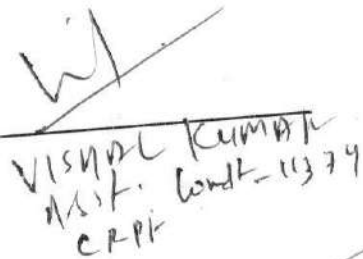 VISHAL KUMAR
Asst. Comdt. - 11374
CRPF